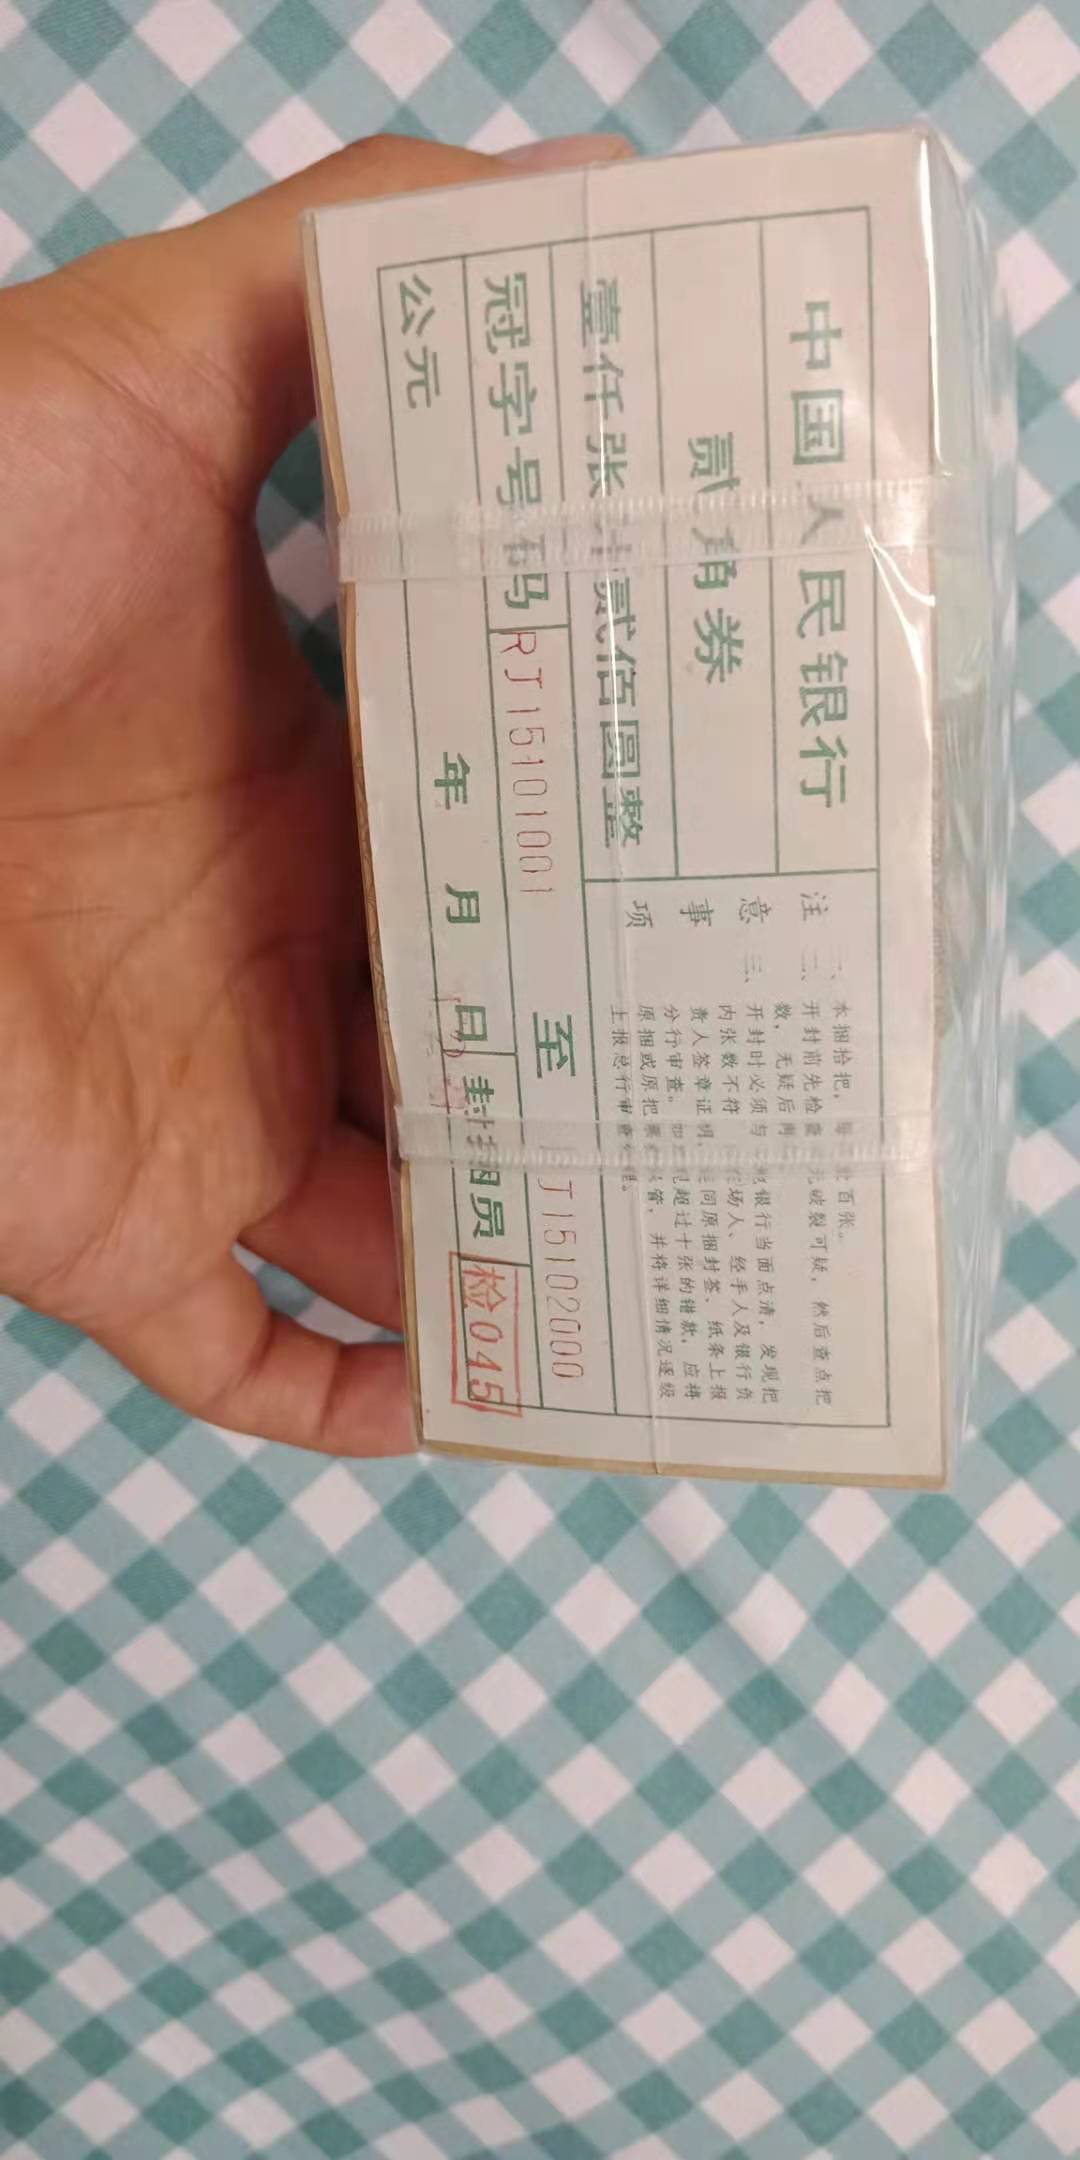 中国人民银行
贰角券
壹仟张计贰佰圆整
冠字号码 RJ15101001 至 J15102000
公元 年 月 日 封捆员 检045
注意事项
一、本捆拾把，每把壹百张。
二、开封前先检查 无破裂可疑，然后查点把
数，无疑后再
三、开封时必须与 银行当面点清，发现把
内张数不符 场人、经手人及银行负
责人签章证明， 同原捆封签、纸条上报
分行审查。如 超过十张的错款，应将
原捆或原把票 管，并将详细情况逐级
上报总行审查